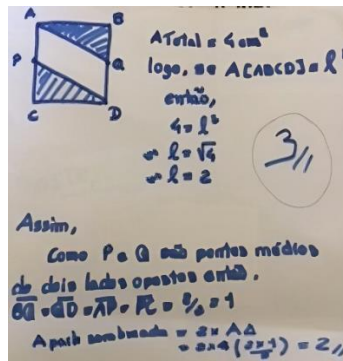 A B
P Q
C D
A Total = 4 cm²
logo, se A[ABCD] = l²
então,
4 = l²
l = √4
l = 2
3//
Assim,
Como P e Q são pontos médios
de dois lados opostos então,
BQ = QD = AP = PC = 2/2 = 1
A parte sombreada = 2 × A△
= 2 × ( 2×1 / 2 ) = 2//